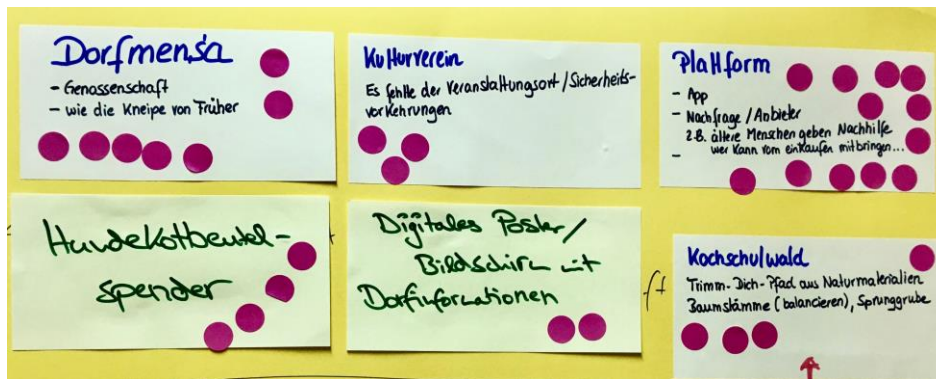 Dorfmensa
- Genossenschaft
- wie die Kneipe von Früher
Kulturverein
Es fehlte der Veranstaltungsort/Sicherheits-
vorkehrungen
Plattform
- App
- Nachfrage/Anbieter
z.B. ältere Menschen geben Nachhilfe
wer kann vom einkaufen mitbringen...
-
Hundekotbeutel-
spender
Digitales Poster/
Bildschirm mit
Dorfinformationen
Kochschulwald
Trimm-Dich-Pfad aus Naturmaterialien
Baumstämme (balancieren), Sprunggrube